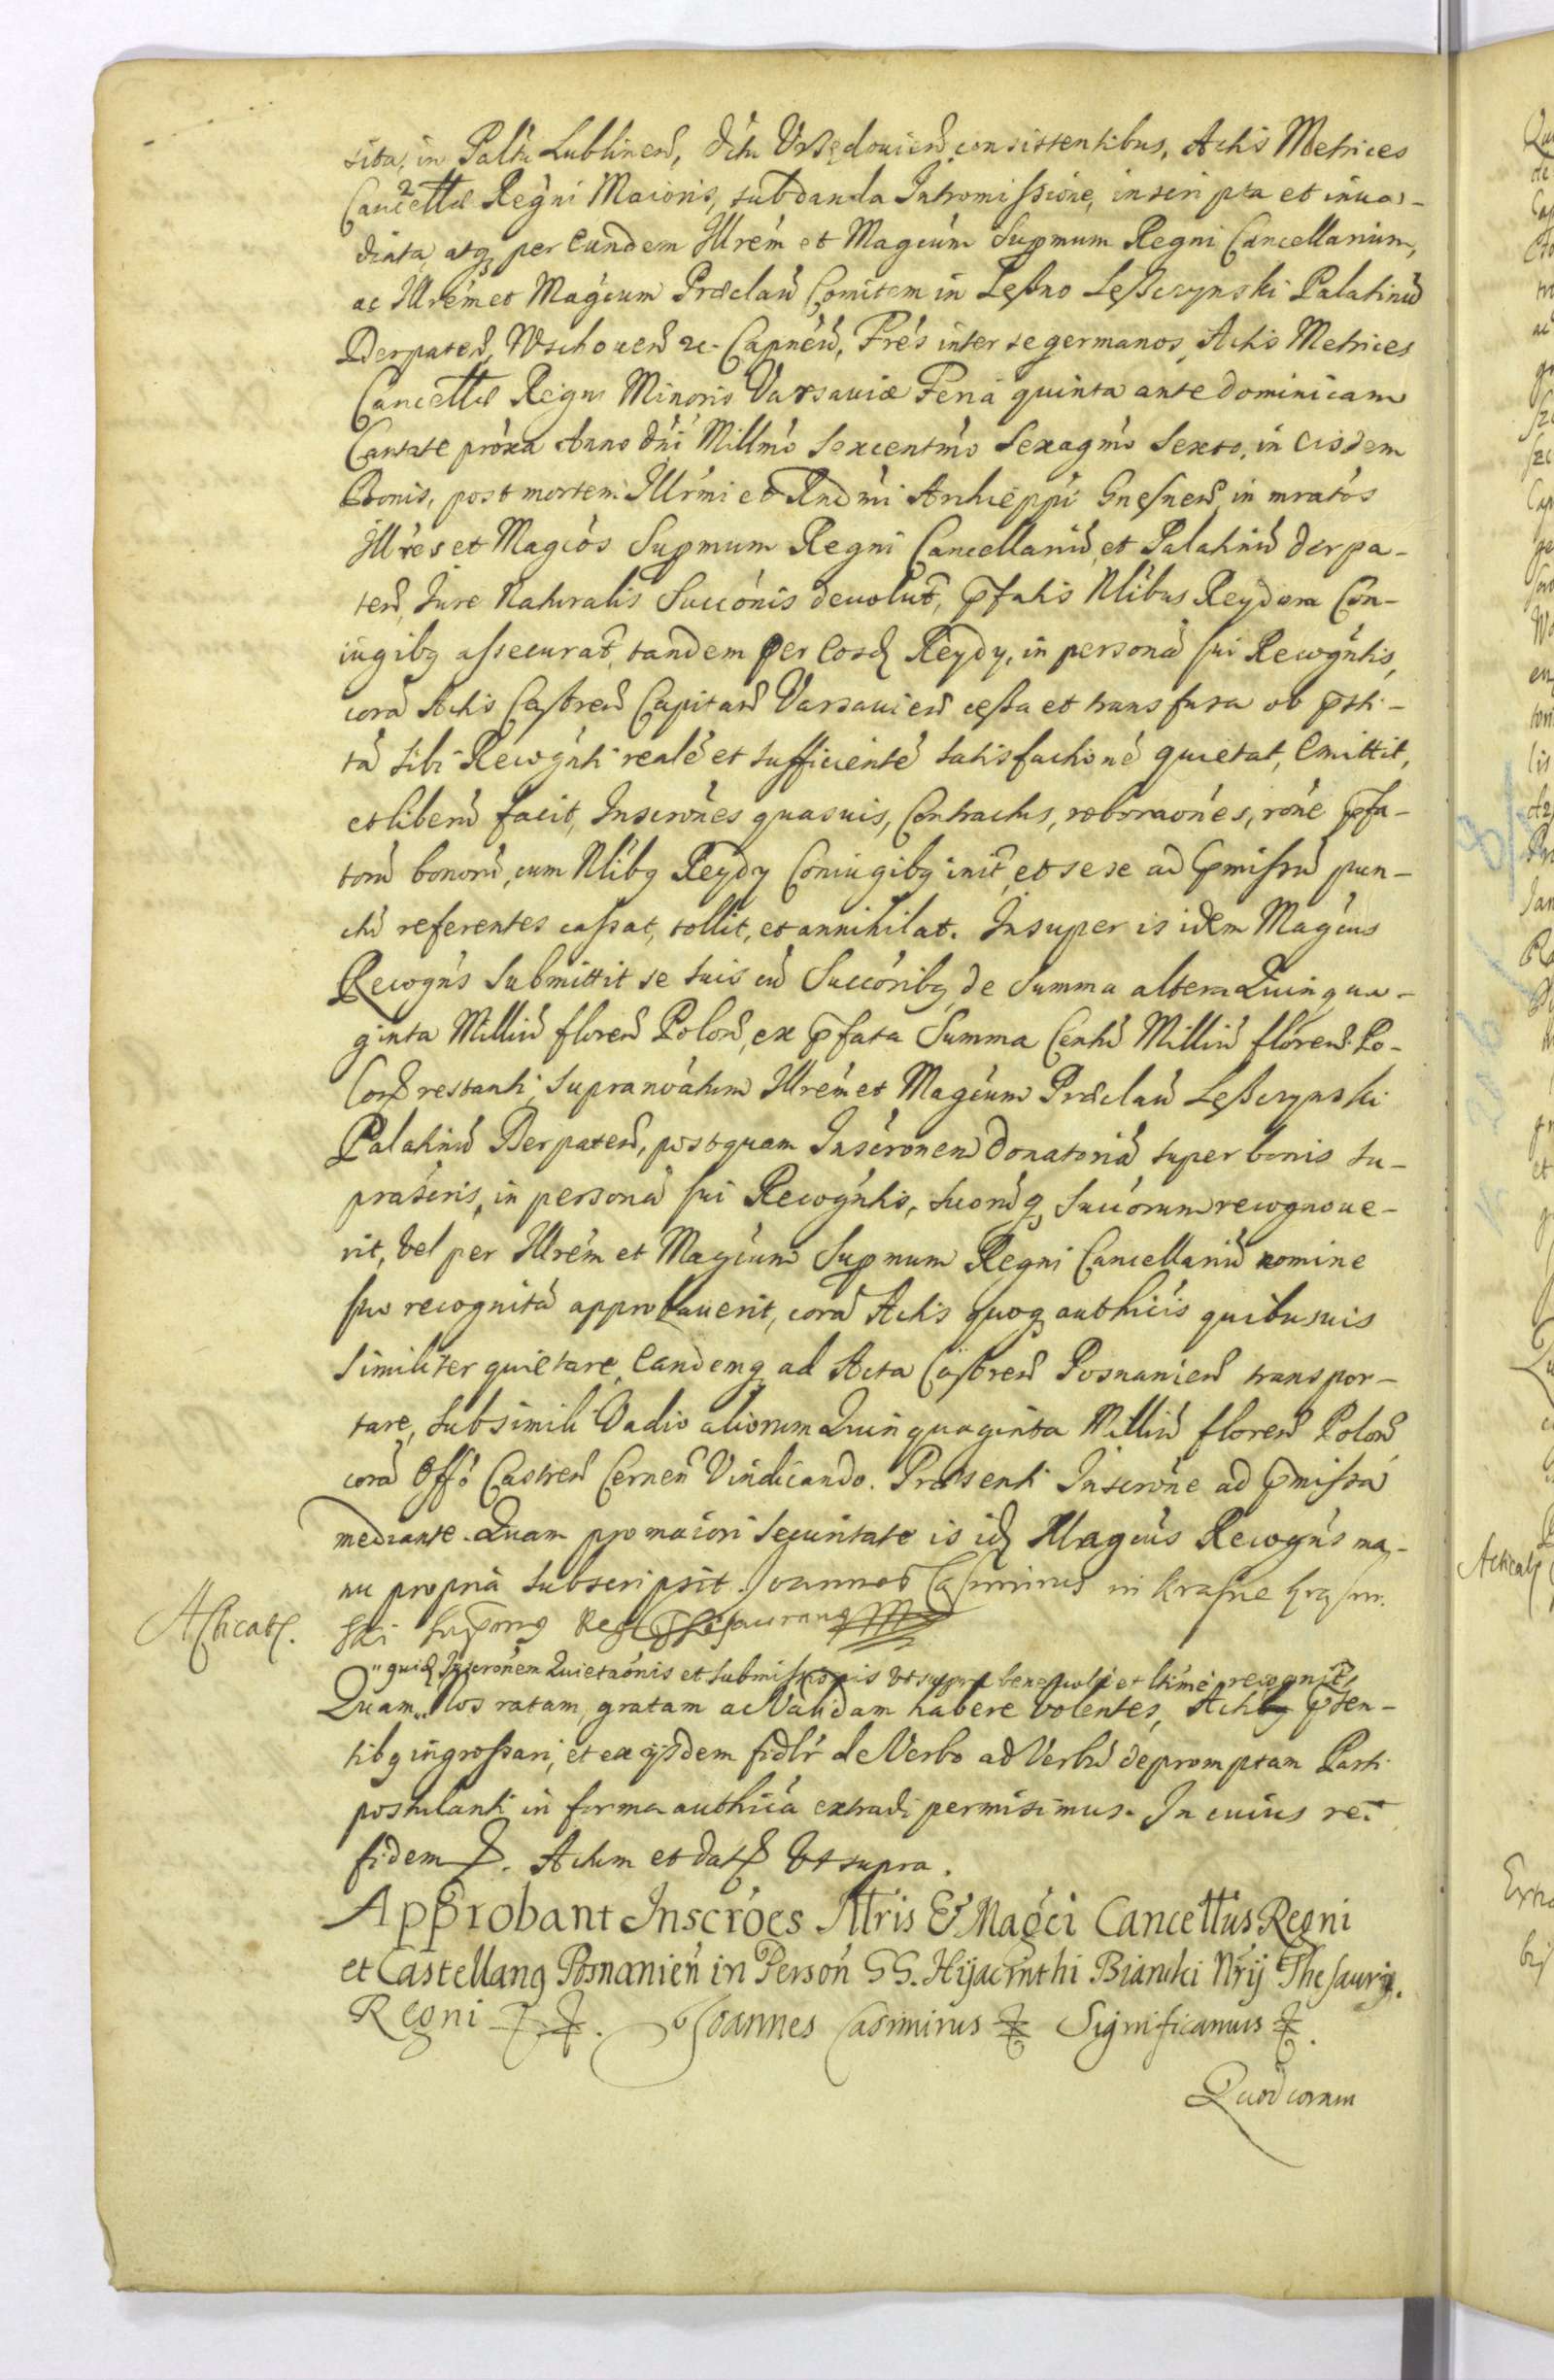 sita, in Paltu Lublinen, Dctu Vrzędouien consistentibus, Actis Metrices
Cancellae Regni Maioris, subdanda Intromissione, inscripta et inua-
diata, atq3 per eundem Illrem et Magcum Supmum Regni Cancellarium,
ac Illrem et Magcum Praeclau Comitem in Leszno Leszczynski Palatinu
Derpaten, Wschouen 2c. Capneu, Fres inter se germanos, Actis Metrices
Cancellae Regni Minoris Varsauiae Feria quinta ante dominicam
Cantate proxa Anno dni Millmo Sexcentmo Sexagmo Sexto, in eisdem
Bonis, post mortem Illrmi et Rndmi Archieppi Gnesnen, in mratos
Illres et Magcos Supmum Regni Cancellariu, et Palatinu derpa-
ten, Jure Naturalis Succonis deuolut, pfatis Nlibus Reydom Con-
iugibq assecurat, tandem per eosd Reydy, in persona sui Recogntis,
cora Actis Castren Capitan Varsauien cessa et transfusa ob psti-
ta sibi Recognti reale et sufficiente satisfactione quietat, Emittit,
et liberu facit, Inscrones quasuis, Contractus, roboraones, rone pfa-
toru bonoru, cum Nlibq Reydy Coniugibq init, et sese ad pmissu pun-
ctu referentes cassat, tollit, et annihilat. Insuper is idem Magcus
Recogns submittit se suis cu Succoribq, de Summa altera Quinqua-
ginta Milliu floren Polon, ex pfata Summa Centu Milliu floren Po-
lon restanti, supranoatum Illrem et Magcum Praeclau Leszczynski
Palatinu Derpaten, postquam Inscronem Donatoria super bonis su-
prascris, in persona sui Recogntis, suoruq, Succorum recognoue-
rit, Vel per Illrem et Magcum Supmum Regni Cancellariu nomine
suo recognita approbauerit, cora Actis quoq3 authcis quibusuis
similiter quietare, Eandemq ad Acta Castren Posnanien transpor-
tare, sub simili Vadio aliorum Quinquaginta Milliu floren Polon
cora Offo Castren Cernen Vindicando. Praesenti Inscrone ad pmissa
mediante. Quam pro maiori securitate is id Magcus Recogns ma-
nu propria subscripsit. Joannes Casimirus in Krasne Krasin
Acticat.
ski Supmq Reg Thesaurarq
quid Inscronem Quietaonis et submissionis Vt supra beneuole et ltime recognit,
Quam Nos ratam, gratam ac Validam habere volentes, Actis psen-
tibq ingrossari, et ex ijsdem fidlr de Verbo ad Verbu depromptam Parti
postulanti in forma authica extradi permisimus. In cuius rei
fidem. Actum et dat Vt supra.
Approbant Inscroes Illris & Magci Cancellus Regni
et Castellanq Posnanien in Person GG. Hijacinthi Biancki Nrij Thesaurij.
Regni. Joannes Casimirus Significamus.
Quod coram